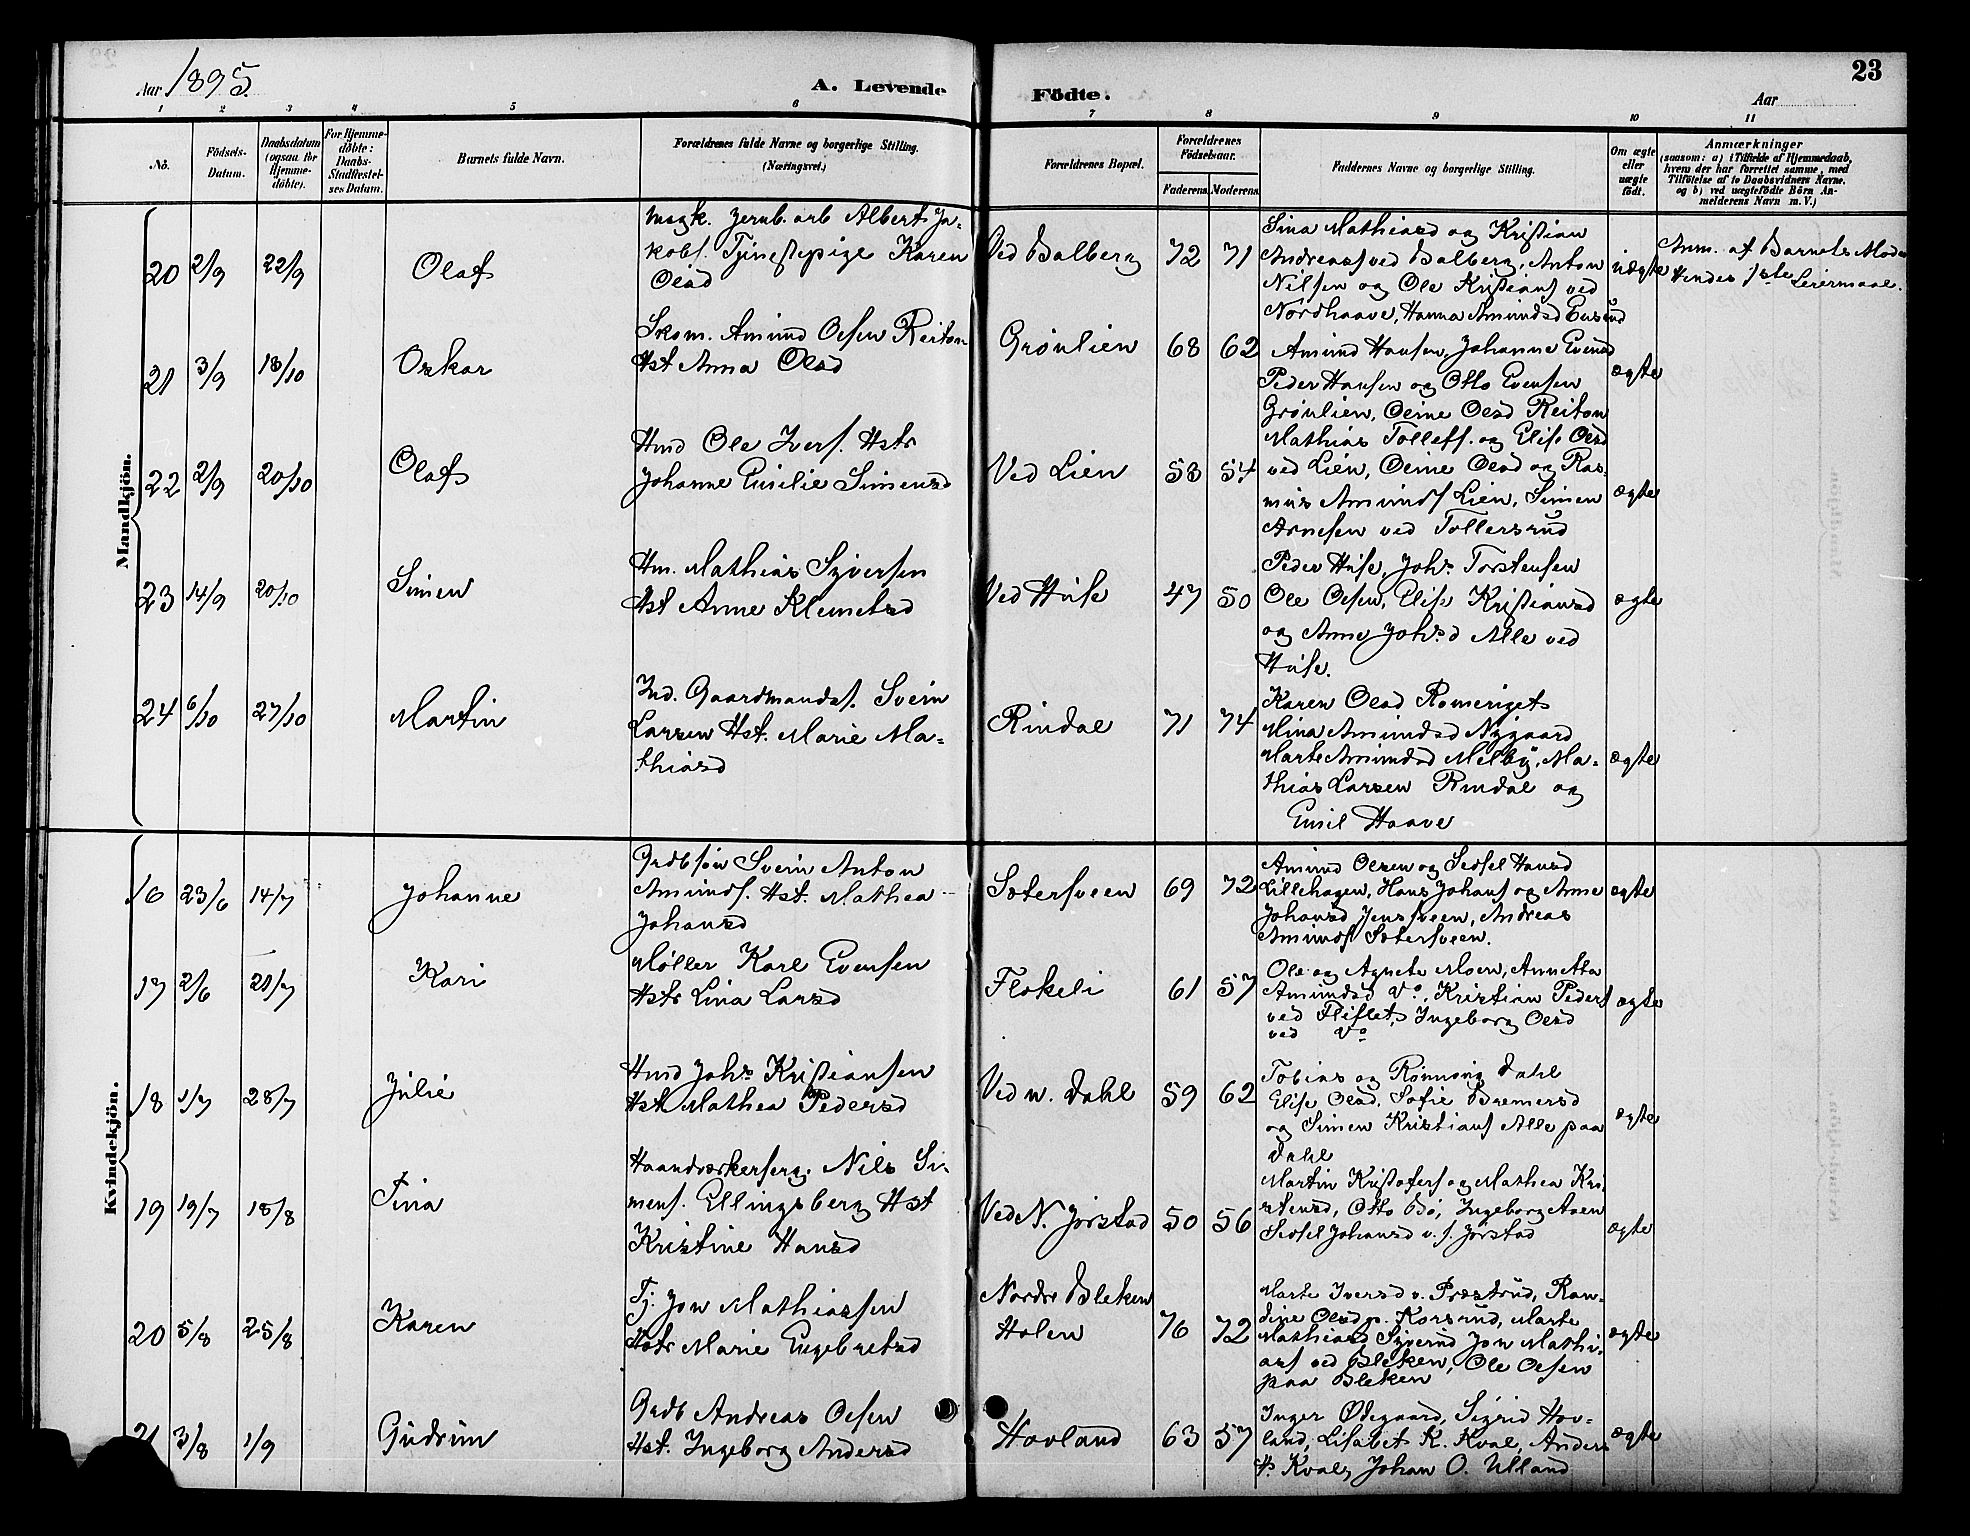 Aar 1895.
A. Levende
Födte.
23
Aar
1 2 3 4 5 6 7 8 9 10 11
No.
Födsels-
Datum.
Daabsdatum
(ogsaa for
Hjemme-
döbte).
For Hjemme-
döbte:
Daabs-
Stadfæstel-
ses Datum.
Barnets fulde Navn.
Forældrenes fulde Navne og borgerlige Stilling.
(Næringsvei.)
Forældrenes Bopæl.
Forældrenes
Födselsaar.
Faderens. Moderens.
Faddernes Navne og borgerlige Stilling.
Om ægte
eller
uægte
født.
Anmærkninger
(saasom: a) i Tilfælde af Hjemmedaab,
hvem der har forrettet samme, med
Tilföielse af to Daabsvidners Navne,
og b) ved uægtefödte Börn An-
melderens Navn m. V.)
Mandkjön.
20 2/9 22/9 Olaf
Ungk. Jernb. arb Albert Ja-
kobs. Tjenestepige Karen
Olsd
Ved Balberg 72 71
Sina Mathiasd og Kristian
Andreass ved Balberg, Anton
Nilsen og Ole Kristians ved
Nordhaave, Hanna Amundsd
uægte
Anm. af Barnets Moder
Hendes 1ste Leiermaal.
21 3/9 13/10 Oskar
Skom. Amund Olsen Reiton
Hst Anna Olsd
Grønlien 68 62
Amund Hansen, Johanne Evensd
Peder Hansen og Otto Evensen
Grønlien, Oline Olsd Reiton
ægte
22 2/9 20/10 Olaf
Hmd Ole Ivers. Hstr
Johanne Emilie Simensd
Ved Lien 53 54
Mathias Tollefs. og Elise Olsd
ved Lien, Oline Olsd og Ras-
mus Amunds Lien, Simen
Arnesen ved Tollersrud
ægte
23 14/9 20/10 Simen
Hm. Mathias Syversen
Hst Anne Klemetsd
Ved Huse 47 50
Peder Huse, Johs Torstensen
Ole Olsen, Elise Kristiansd
og Anne Johsd Alle ved
Huse.
ægte
24 6/10 27/10 Martin
Ind. Gaardmands. Svein
Larsen Hst. Marie Ma-
thiasd
Rindal 71 74
Karen Olsd Romeriget
Mina Amundsd Nygaard
Marte Amundsd Melby, Ma-
thias Larsen Rindal og
Emil Haave
ægte
Kvindekjön.
16 23/6 14/7 Johanne
Grdbsøn Svein Anton
Amunds. Hst. Mathea
Johansd
Sætersveen 69 72
Amund Olsen og Sedsel Hansd
Lillehagen, Hans Johans og Anne
Johansd Jensveen, Andreas
Amunds Sætersveen.
ægte
17 2/6 21/7 Kari
Møller Karl Evensen
Hstr Lina Larsd
Flokeli 61 57
Ole og Agnete Moen, Annetta
Amundsd Do, Kristian Peders
ved Fliflet, Ingeborg Olsd
ved Do
ægte
18 1/7 28/7 Julie
Hmd Johs Kristiansen
Hst Mathea Pedersd
Ved n. Dahl 59 62
Tobias og Rønnaug Dahl
Elise Olsd, Sofie Bremersd
og Simen Kristians Alle paa
Dahl
ægte
19 19/7 18/8 Tina
Haandværkersvg. Nils Si-
mens. Ellingsberg Hst
Kristine Hansd
Ved N. Jørstad 50 56
Martin Kristofers og Mathea Kri-
stensd, Otto Bø, Ingeborg Aaen
Sedsel Johansd v. s. Jørstad
ægte
20 5/8 25/8 Karen
Tj. Jon Mathiassen
Hstr Marie Engebretsd
Nordre Bleken
Holen 76 72
Marte Iversd v. Præstrud, Ran-
dine Olsd p. Korsrud, Marte
Mathiasd Syverud Jon Mathi-
ass ved Bleken, Ole Olsen
paa Bleken
ægte
21 3/8 1/9 Gudrun
Grdb Andreas Olsen
Hst. Ingeborg Andersd
Hovland 63 57
Inger Ødegaard, Sigrid Hov-
land, Lisabet K. Kval, Anders
H. Kval, Johan O. Ulland
ægte